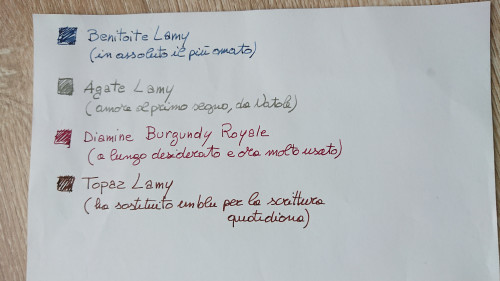 Benitoite Lamy
(in assoluto il più amato)
Agate Lamy
(amore al primo segno, da Natale)
Diamine Burgundy Royale
(a lungo desiderato e ora molto usato)
Topaz Lamy
(ha sostituito un blu per la scrittura
quotidiana)